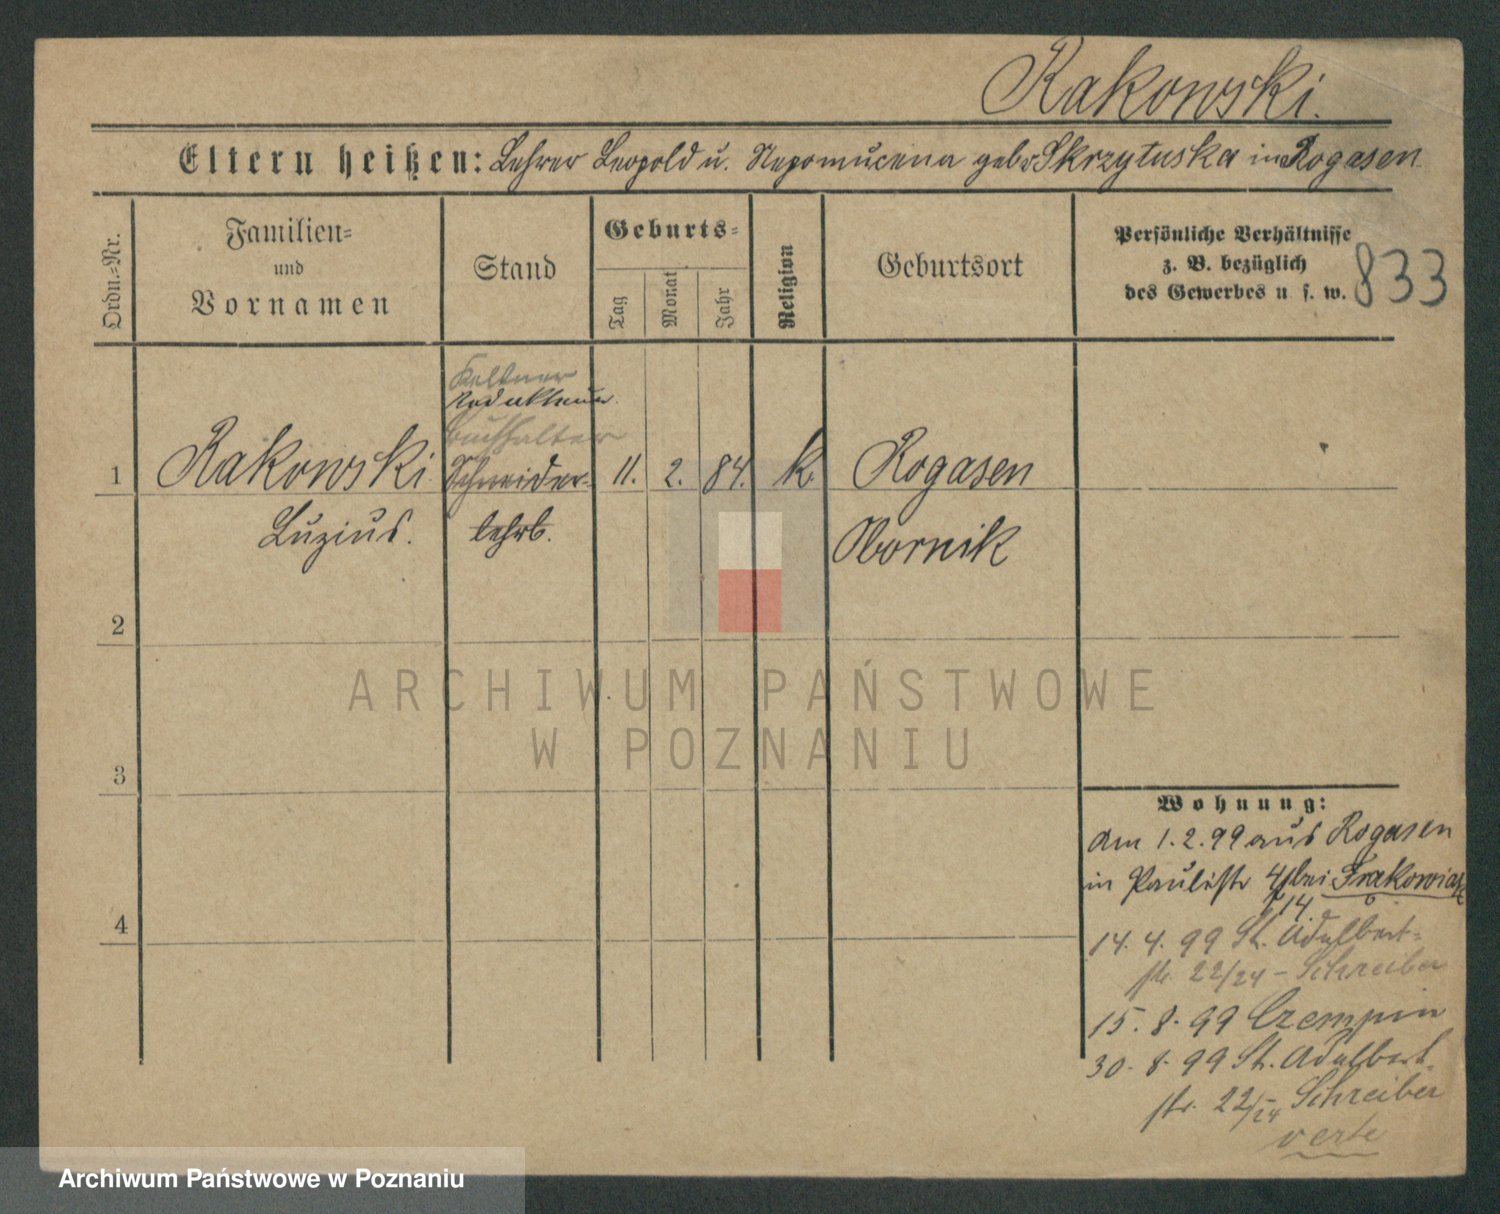 Rakowski.
Eltern heißen: Lehrer Leopold u. Nepomucena geb. Skrzytuska in Rogasen
Ordn.-Nr.
Familien-
und
Vornamen
Stand
Geburts-
Tag
Monat
Jahr
Religion
Geburtsort
Persönliche Verhältnisse
z. B. bezüglich
des Gewerbes u. s. w.
833
Kellner
Redakteur
Buchhalter
1 Rakowski Schneider- 11. 2. 84. k. Rogasen
Luzius. lehrl. Obornik
2
3
4
Wohnung:
Am 1.2.99 aus Rogasen
in Paulistr 4 bei
14
14. 4. 99 St. Adalbert-
str. 22/24 - Schreiber
15. 8. 99 Czempin
30. 8. 99 St. Adalbert-
str. 22/24 Schreiber
verte
ARCHIWUM PAŃSTWOWE
W POZNANIU
Archiwum Państwowe w Poznaniu